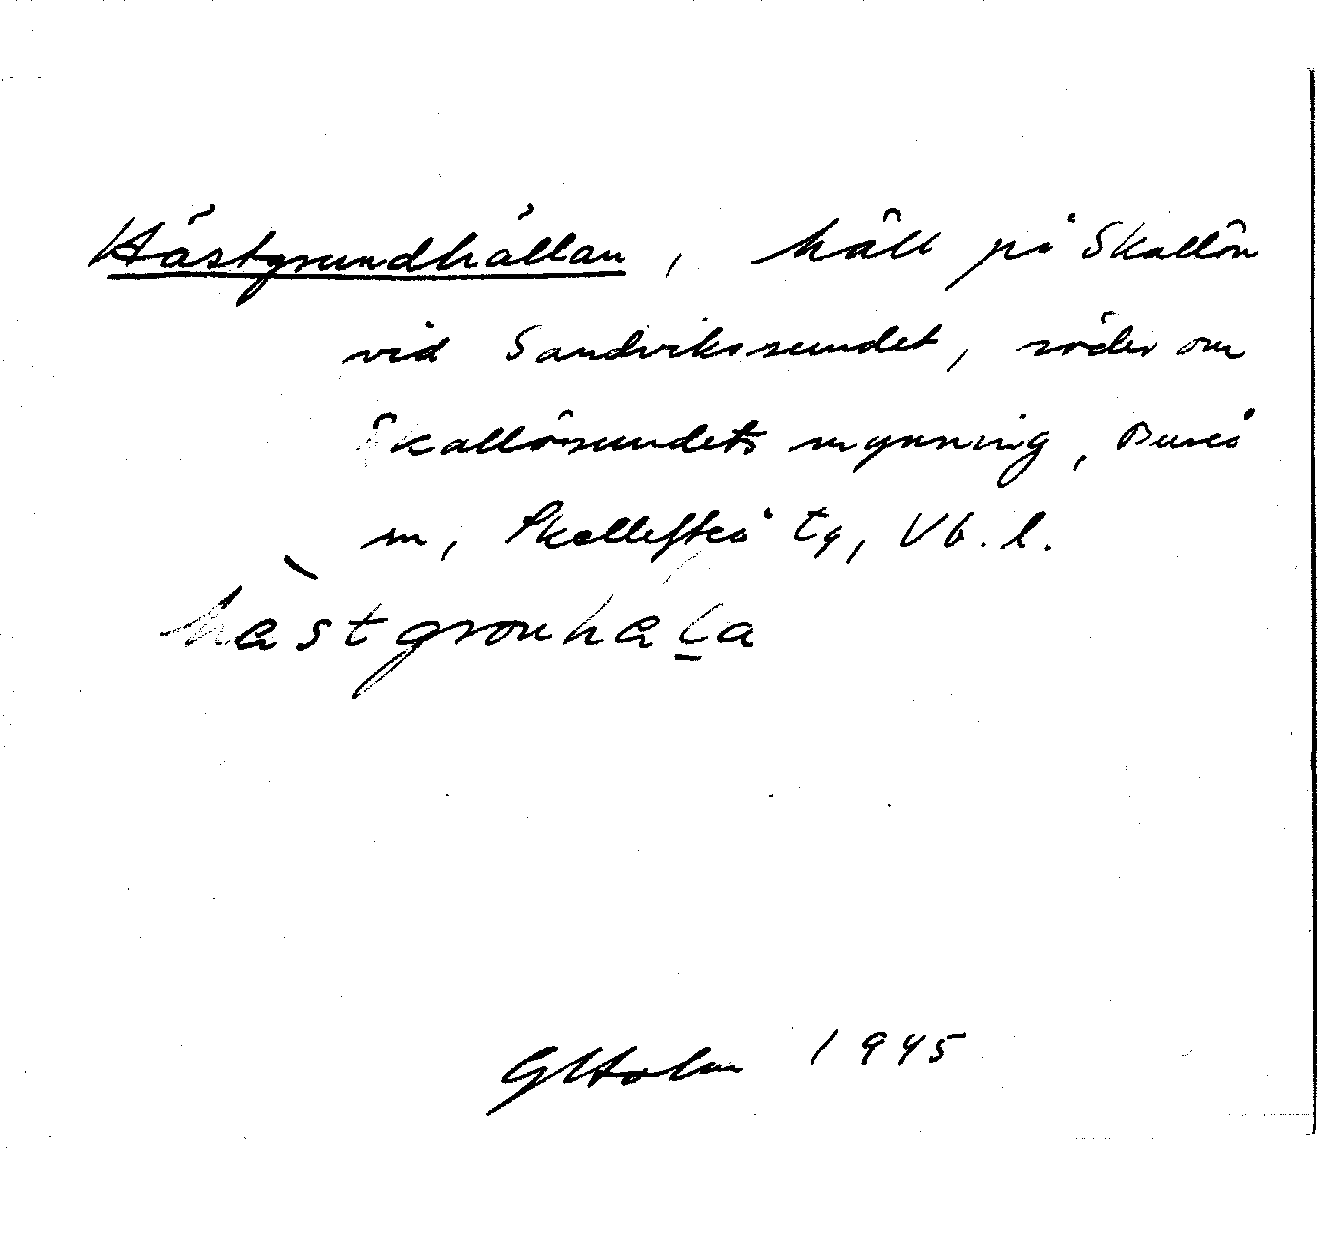 Hästgrundhällan, häll på Skallön
vid Sandvikssundet, söder om
Skallösundets mynning, Bureå
sn, Skellefteå tg, Vb. l.
hàstgronhaḻa
GHolm 1945